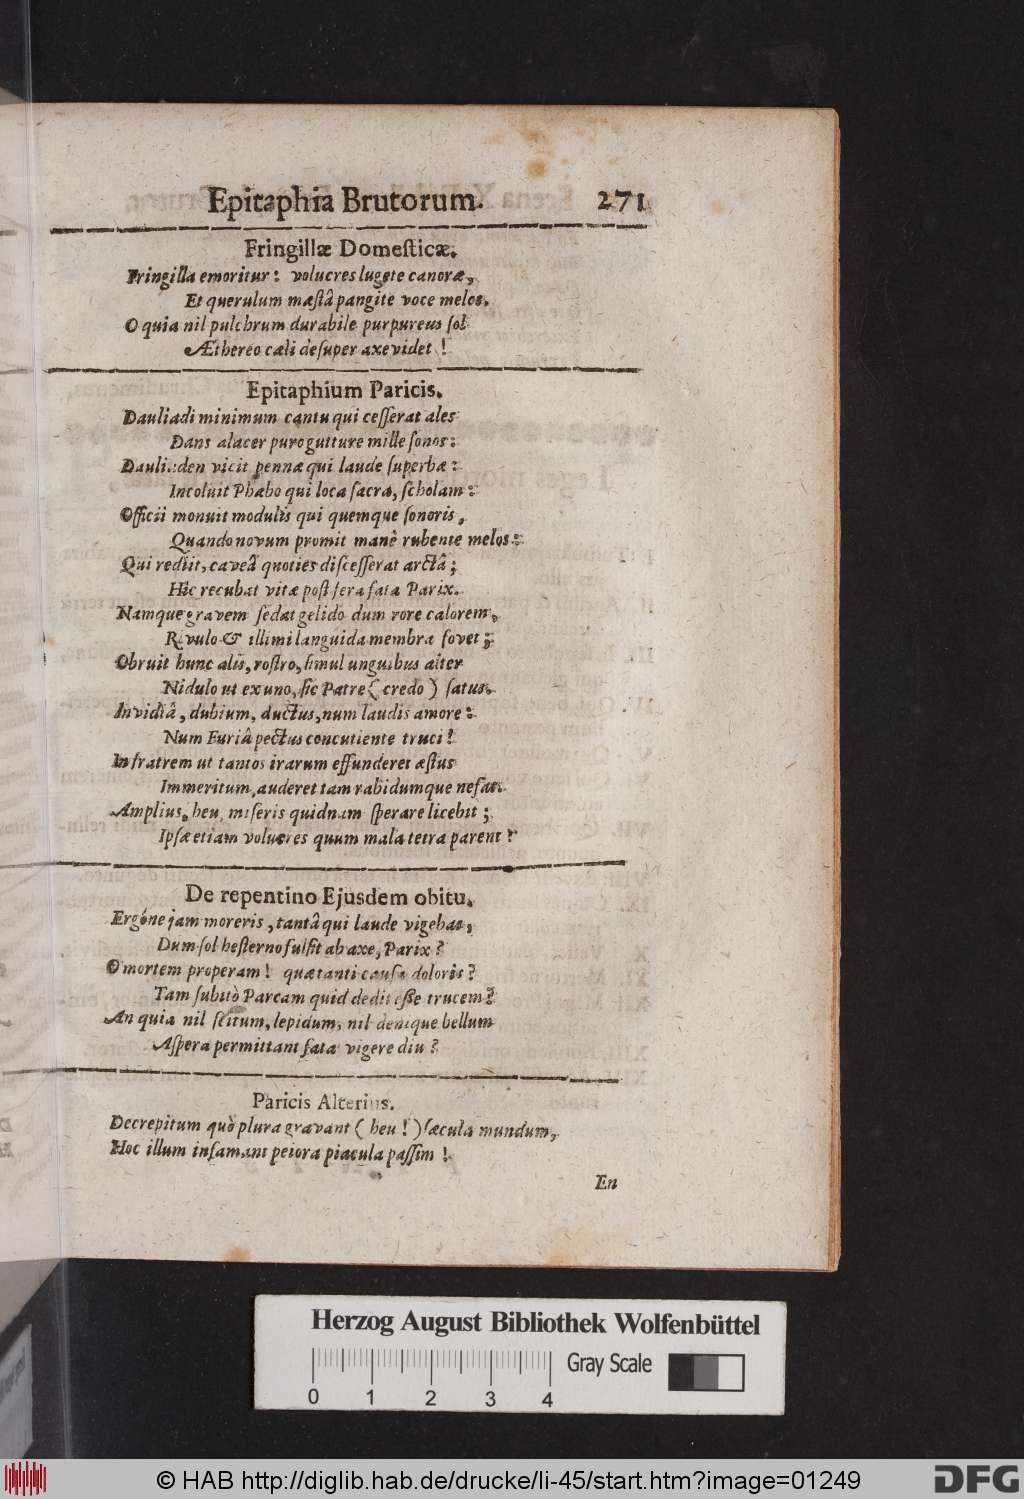 Epitaphia Brutorum. 271
Fringillæ Domeſticæ.
Fringilla emoritur: volucres lugete canoræ,
Et querulum mæſtâ pangite voce melos.
O quia nil pulchrum durabile purpureus ſol
Æthereo cæli deſuper axe videt!
Epitaphium Paricis.
Dauliadi minimum cantu qui ceſſerat ales
Dans alacer puro gutture mille ſonos:
Dauliaden vicit pennæ qui laude ſuperbæ:
Incoluit Phæbo qui loca ſacra, ſcholam:
Officii monuit modulis qui quemque ſonoris,
Quando novum promit manè rubente melos:
Qui rediit, caveâ quoties diſceſſerat arctâ;
Hic recubat vitæ poſt fera fata Parix.
Namque gravem ſedat gelido dum rore calorem,
Rivulo & illimi languida membra fovet;
Obruit hunc alis, roſtro, ſimul unguibus alter
Nidulo ut ex uno, ſic Patre (credo) ſatus.
Invidiâ, dubium, ductus, num laudis amore:
Num Furiâ pectus concutiente truci?
In fratrem ut tantos irarum effunderet æſtus
Immeritum, auderet tam rabidumque nefas.
Amplius, heu, miſeris quidnam ſperare licebit;
Ipſæ etiam volucres quum mala tetra parent?
De repentino Ejusdem obitu.
Ergóne jam moreris, tantâ qui laude vigebas,
Dum ſol heſterno fulſit ab axe, Parix?
O mortem properam! quæ tanti cauſa doloris?
Tam ſubitò Parcam quid dedit eſſe trucem?
An quia nil ſcitum, lepidum, nil denique bellum
Aſpera permittant fata vigere diu?
Paricis Alterius.
Decrepitum quò plura gravant (heu!) ſæcula mundum,
Hoc illum inſamant peiora piacula paſſim!
En
Herzog August Bibliothek Wolfenbüttel
Gray Scale
0 1 2 3 4
© HAB http://diglib.hab.de/drucke/li-45/start.htm?image=01249
DFG